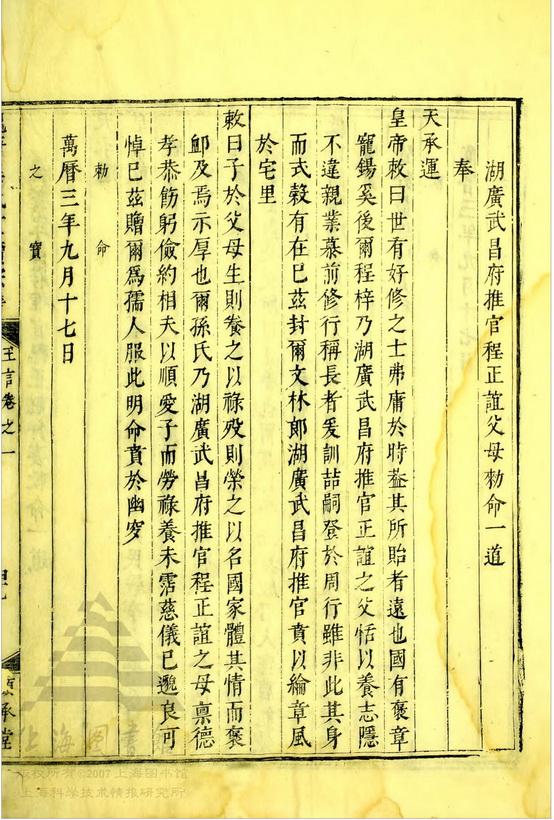 湖廣武昌府推官程正誼父母勑命一道
奉
天承運
皇帝敕曰世有好修之士弗庸於時葢其所貽者遠也國有褒章
寵錫奚後爾程梓乃湖廣武昌府推官正誼之父恬以養志隱
不違親業慕前修行稱長者爰訓喆嗣登於周行雖非此其身
而式穀有在巳茲封爾文林郎湖廣武昌府推官賁以綸章風
於宅里
敕曰子於父母生則養之以祿歿則榮之以名國家體其情而褒
卹及焉示厚也爾孫氏乃湖廣武昌府推官程正誼之母禀德
孝恭飭躬儉約相夫以順愛子而勞祿養未霑慈儀已邈良可
悼巳茲贈爾為孺人服此明命賁於幽穸
勑命
萬曆三年九月十七日
之寶
王言卷之一
承堂
上海图書
版权所有©2007上海图书馆
上海科学技术情报研究所